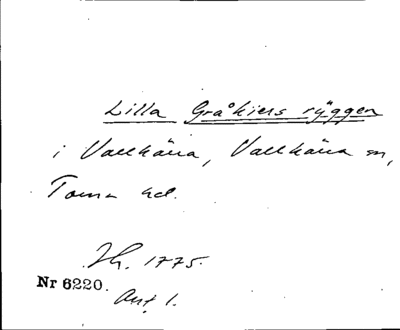 Lilla Gråkiers ryggen
i Vallkärra, Vallkärra sn,
Torna hd.
Jh. 1775.
Nr 6220.
Ant 1.